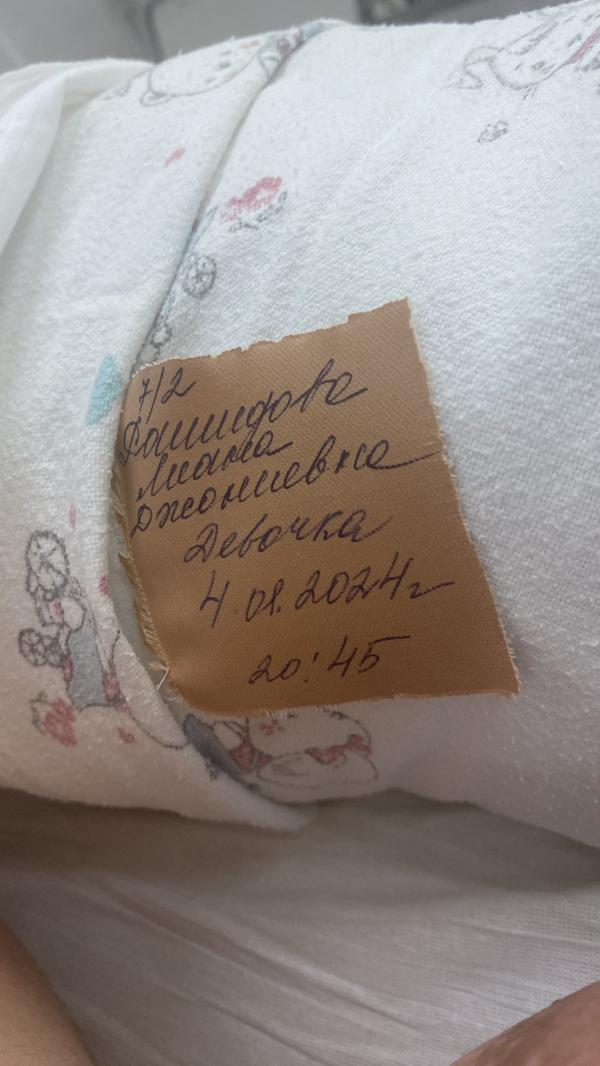 7/2
Рашидова
Лиана
Джониевна
Девочка
4.01.2024г
20:45